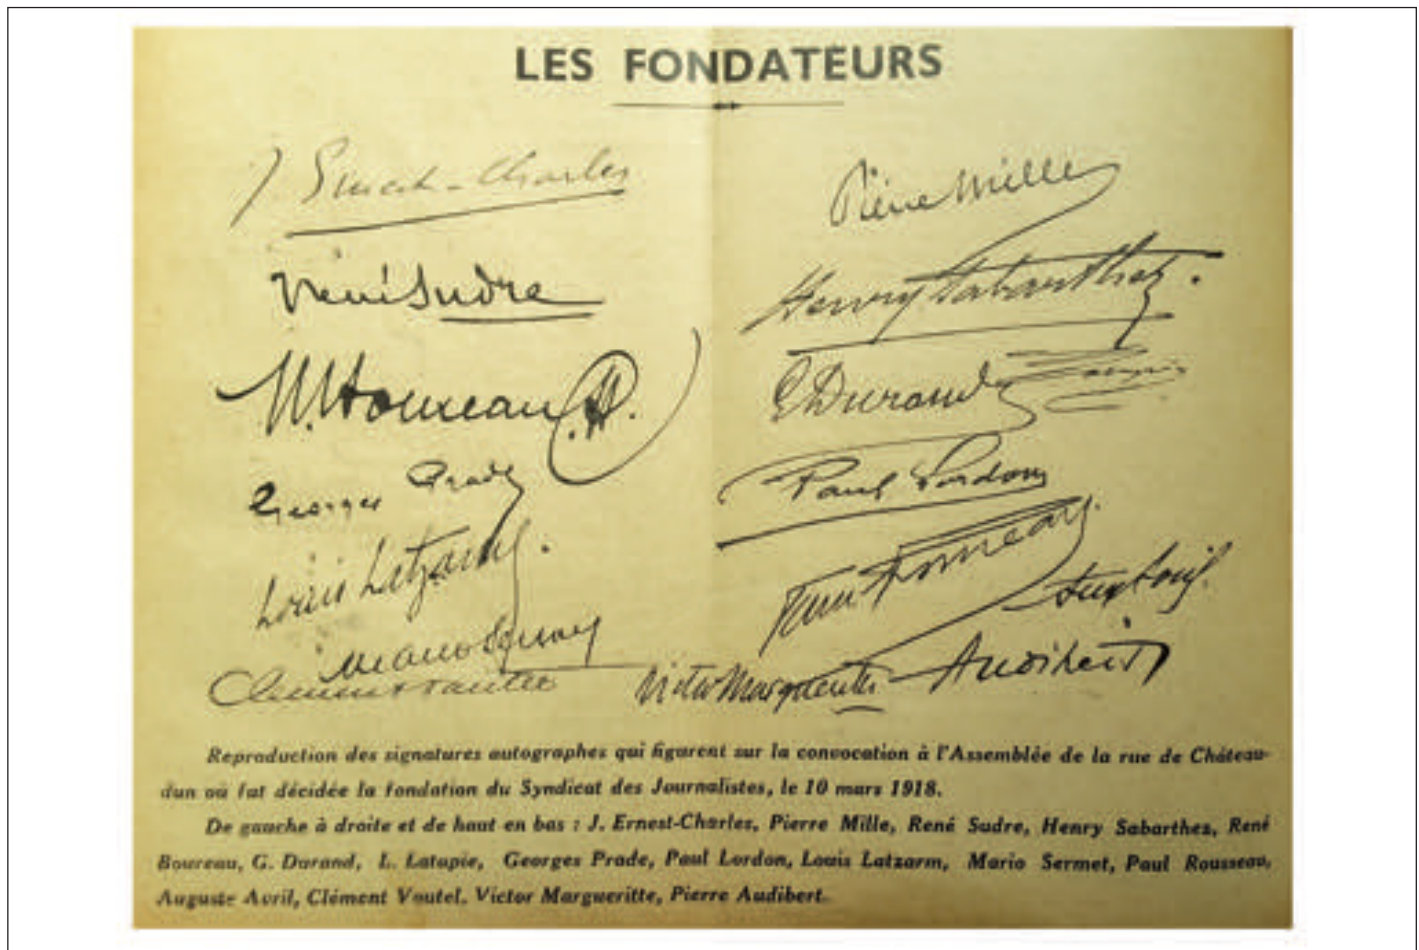 LES FONDATEURS
J Ernest-Charles
Pierre Mille
René Sudre
Henry Sabarthez.
G Durand
Georges Prade
Paul Lordon
Louis Latzarus.
Mario Sermet
Victor Margueritte
Audibert
Reproduction des signatures autographes qui figurent sur la convocation à l'Assemblée de la rue de Château-
dun où fut décidée la fondation du Syndicat des Journalistes, le 10 mars 1918.
De gauche à droite et de haut en bas : J. Ernest-Charles, Pierre Mille, René Sudre, Henry Sabarthez, René
Boureau, G. Durand, L. Latapie, Georges Prade, Paul Lordon, Louis Latzarm, Mario Sermet, Paul Rousseau,
Auguste Avril, Clément Vautel, Victor Margueritte, Pierre Audibert.